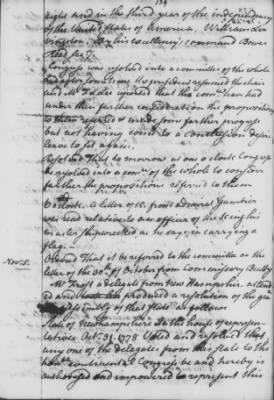 134
eight and in the third year of the independency
of the United States of America. William
Livingston. By his excellency's command Bowes
Reed Sec.y
Congress was resolved into a committee of the whole
and after some time the president resumed the chair
and Mr reported that the com.ee have had
under their farther consideration the propositions
to them referred & made some farther progress
but not having come to a conclusion desire
leave to sit again.
Resolved That to morrow at one o clock Congress
be resolved into a com.ee of the whole to consider
farther the propositions referred to them
6 o clock. A letter of 15. from admiral Gambier
was read relative to an officer of the
master shipwrecked as he says in carrying a
flag.
Ordered That it be referred to the committee on the
letter of the 30th of October from Commissary Beatty
Nov. 5.
Mr Frost a delegate from New Hampshire attend
ed and produced a resolution of the gen
assembly of that state as follows
State of Newhampshire In the house of represen
tatives Oct. 31. 1778 Voted and resolved that
any one of the delegates from this state to the
hon.ble continental Congress be and hereby is
authorised and impowered to represent this